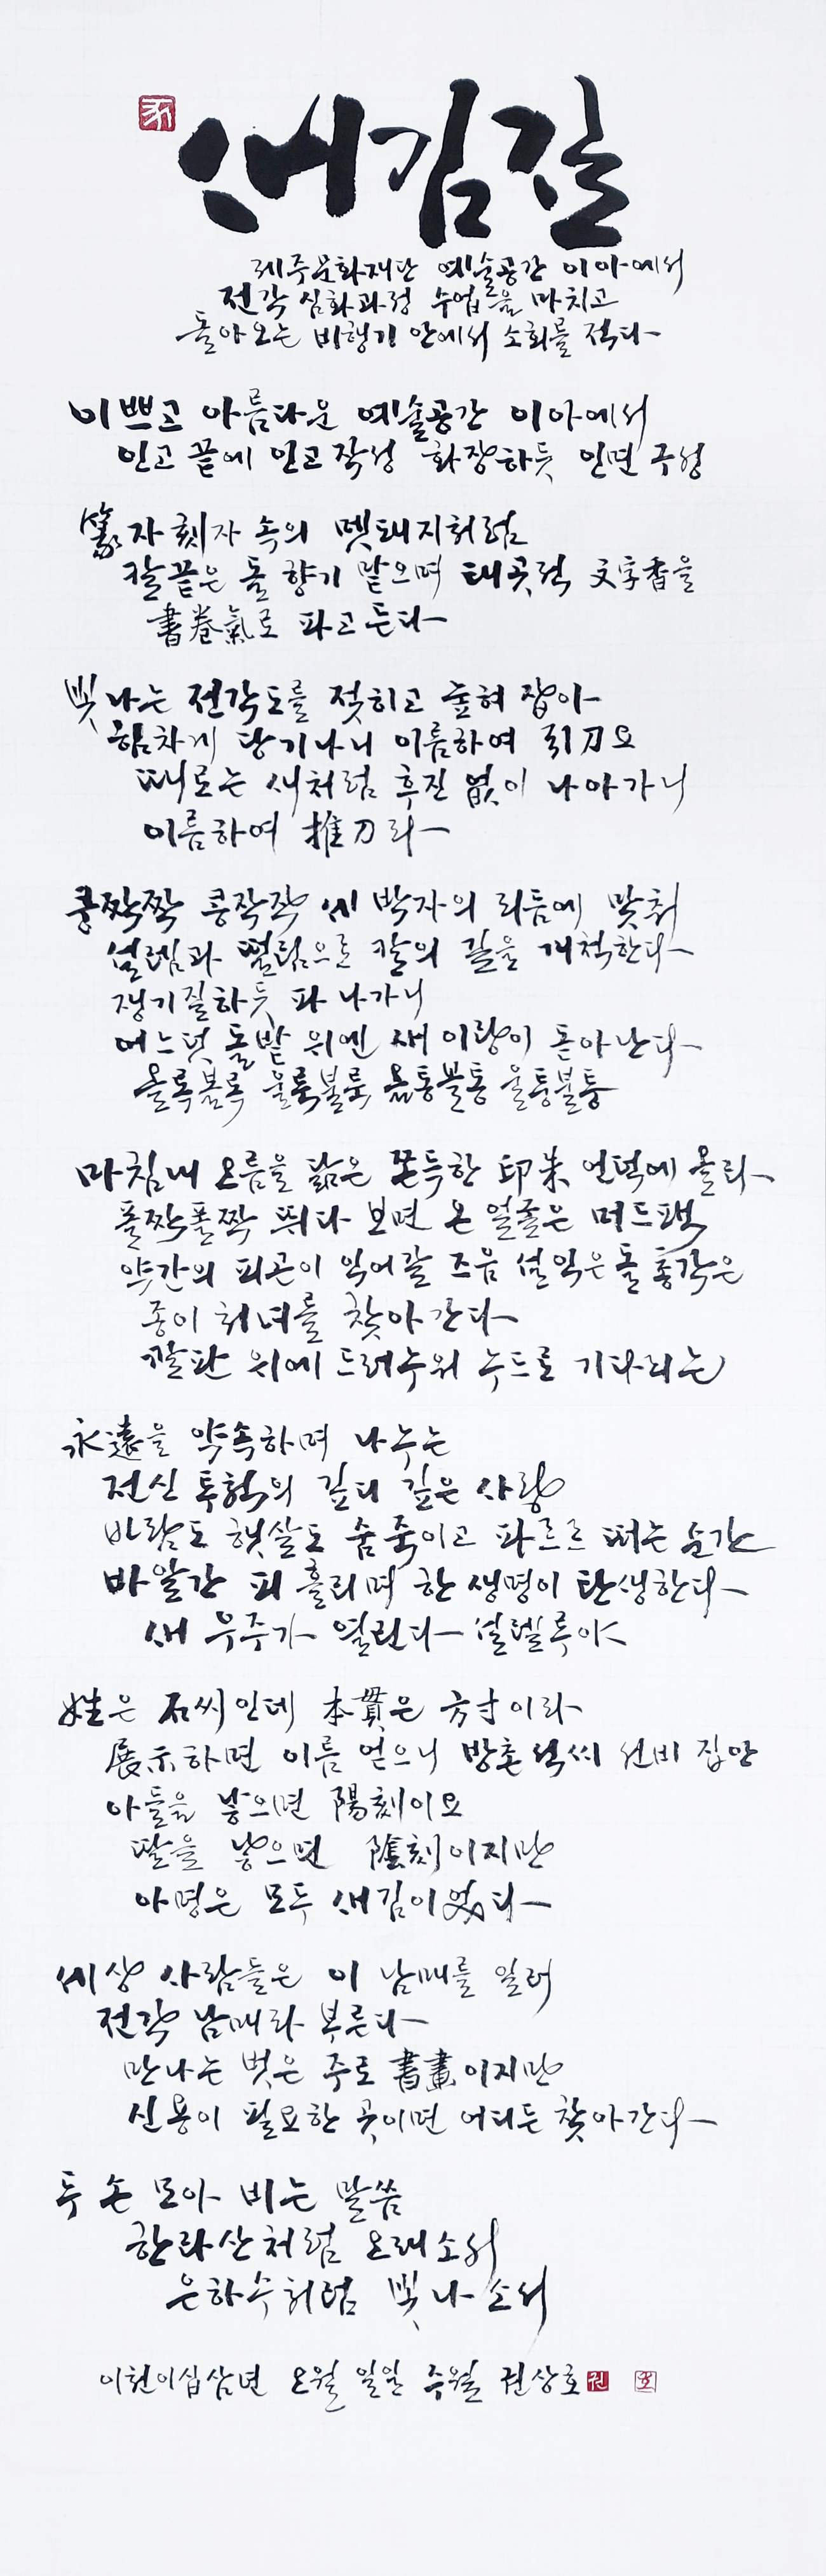 새김길
제주문화재단 예술공간 이아에서
전각 심화과정 수업을 마치고
돌아오는 비행기 안에서 소회를 적다
이쁘고 아름다운 예술공간 이아에서
인고 끝에 인고 작성 화장하듯 인면 구성
篆자 刻자 속의 멧돼지처럼
칼끝은 돌 향기 맡으며 태곳적 文字香을
書卷氣로 파고든다
빛나는 전각도를 젖히고 눕혀 잡아
힘차게 당기나니 이름하여 引刀요
때로는 새처럼 후진 없이 나아가니
이름하여 推刀라
쿵짝짝 쿵작작 세 박자의 리듬에 맞춰
설렘과 떨림으로 칼의 길을 개척한다
쟁기질하듯 파 나가니
어느덧 돌밭 위엔 새 이랑이 돋아난다
올록볼록 울룩불룩 올통볼통 울퉁불퉁
마침내 오름을 닮은 쫀득한 印朱 언덕에 올라
폴짝폴짝 뛰다 보면 온 얼굴은 머드팩
약간의 피곤이 익어갈 즈음 설익은 돌 총각은
종이 처녀를 찾아간다
깔판 위에 드러누워 누드로 기다리는
永遠을 약속하며 나누는
전신 투척의 깊디 깊은 사랑
바람도 햇살도 숨죽이고 파르르 떠는 순간
바알간 피 흘리며 한 생명이 탄생한다
새 우주가 열린다 설렐루야
姓은 石씨인데 本貫은 方寸이라
展示하면 이름 얻으니 방촌석씨 선비 집안
아들을 낳으면 陽刻이요
딸을 낳으면 陰刻이지만
아명은 모두 새김이였다
세상 사람들은 이 남매를 일러
전각 남매라 부른다
만나는 벗은 주로 書畫이지만
신용이 필요한 곳이면 어디든 찾아간다
두 손 모아 비는 말씀
한라산처럼 오래소서
은하수처럼 빛나소서
이천이십삼년 오월 일일 수월 권상호